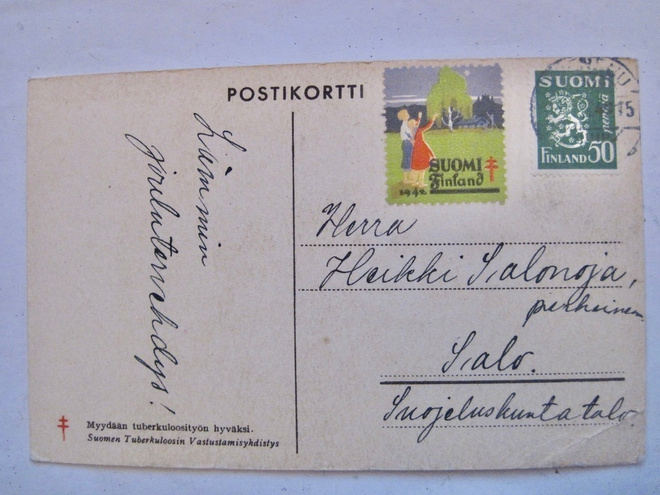 POSTIKORTTI
Lämmin
jouluterwehdys!
SUOMI
Finland
1942
SUOMI
penniä
FINLAND 50
15
Herra
Heikki Salonoja,
perheineen
Salo.
Suojeluskuntatalo.
Myydään tuberkuloosityön hyväksi.
Suomen Tuberkuloosin Vastustamisyhdistys